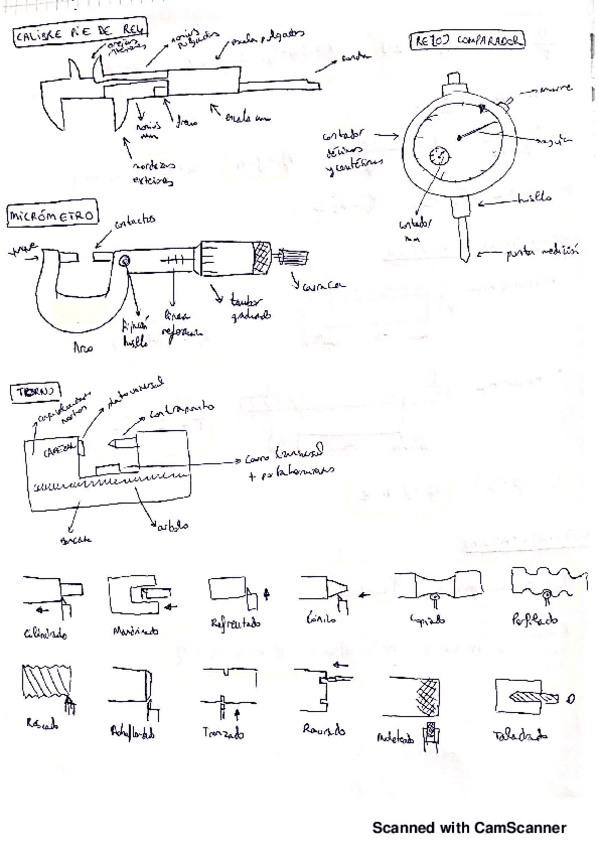 CALIBRE PIE DE REY
orejas interiores
nonius pulgadas
escala pulgadas
sonda
nonius mm
freno
escala mm
mordazas exteriores
RELOJ COMPARADOR
contador décimas y centésimas
aguja
contador mm
husillo
punta medición
MICRÓMETRO
contactos
Arco
fijación husillo
línea referencia
tambor graduado
carraca
TORNO
plato universal
contrapunto
CABEZAL
carro transversal + portaherramientas
bancada
Cilindrado
Mandrinado
Refrentado
Cónico
Copiado
Perfilado
Roscado
Achaflanado
Tronzado
Ranurado
Moleteado
Taladrado
Scanned with CamScanner